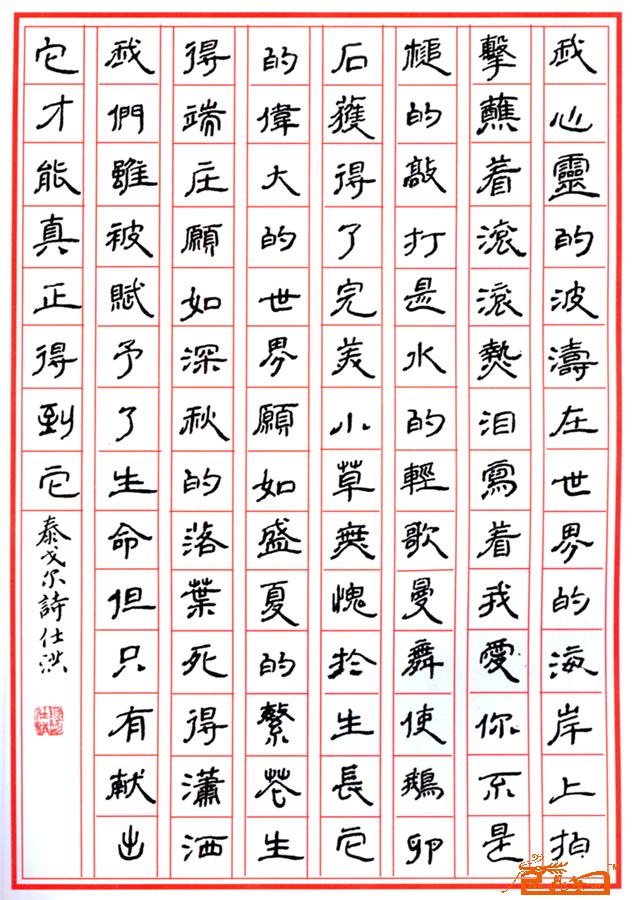 我心靈的波濤在世界的海岸上拍
擊蘸着滾滾熱泪寫着我愛你不是
槌的敲打是水的輕歌曼舞使鵝卵
石獲得了完美小草無愧於生長它
的偉大的世界願如盛夏的繁花生
得端庄願如深秋的落葉死得瀟洒
我們雖被賦予了生命但只有献出
它才能真正得到它
泰戈尔詩仕洪